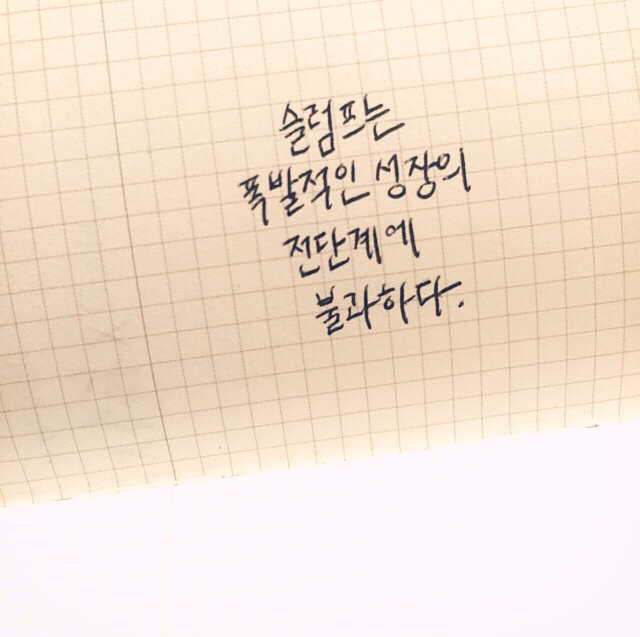 슬럼프는
폭발적인 성장의
전단계에
불과하다.